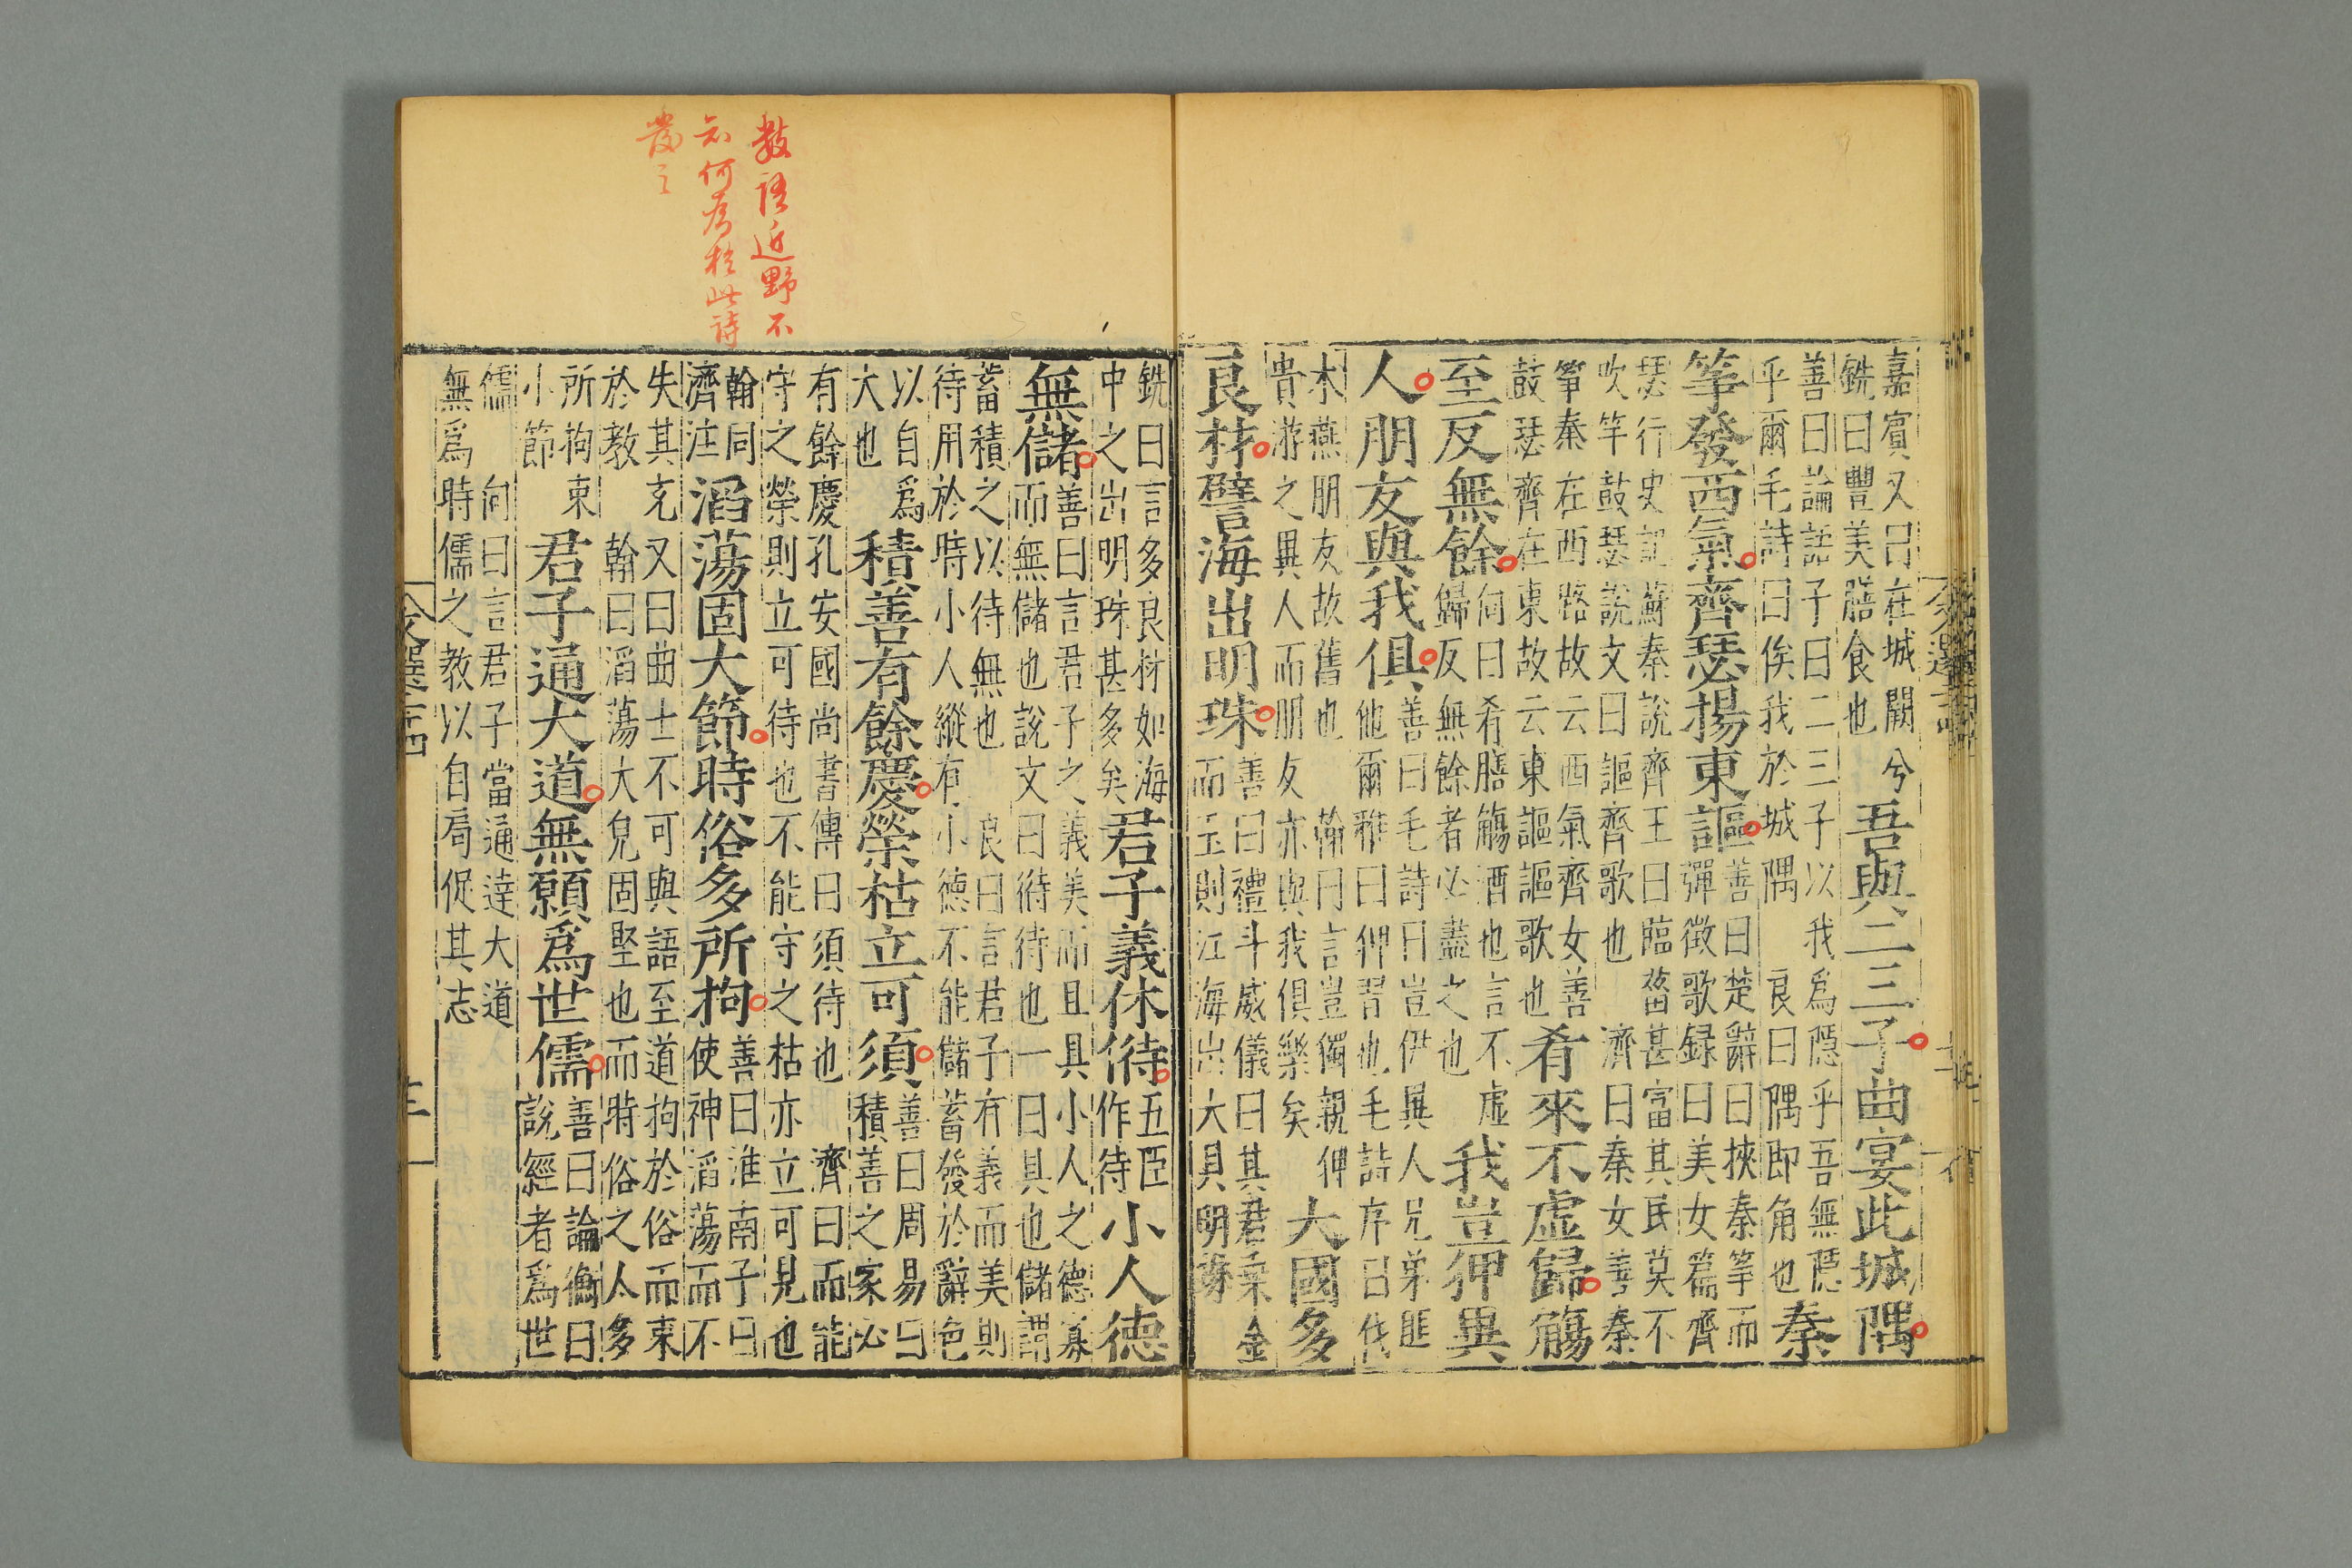 嘉賓又曰在城闕兮
銑曰豐美膳食也
吾與二三子曲宴此城隅
善曰論語子曰二三子以我爲隱乎吾無隱
乎爾毛詩曰俟我於城隅 良曰隅即角也
秦
箏發西氣齊瑟揚東謳
善曰楚辭曰挾秦箏而
彈徵歌録曰美女篇齊
瑟行史記蘇秦說齊王曰臨菑甚富其民莫不
吹竽鼓瑟說文曰謳齊歌也 濟曰秦女善秦
箏秦在西路故云西氣齊女善
鼓瑟齊在東故云東謳謳歌也
肴來不虛歸觴
至反無餘
向曰肴膳觴酒也言不虛
歸反無餘者必盡之也
我豈狎異
人朋友與我俱
善曰毛詩曰豈伊異人兄弟匪
他爾雅曰狎習也毛詩序曰伐
木燕朋友故舊也 翰曰言豈獨親狎
貴游之異人而朋友亦與我俱樂矣
大國多
良材譬海出明珠
善曰禮斗威儀曰其君乘金
而王則江海出大貝明珠
銑曰言多良材如海
中之出明珠甚多矣
君子義休偫
五臣
作待
小人德
無儲
善曰言君子之義美而且具小人之德寡
而無儲也說文曰偫待也一曰具也儲謂
蓄積之以待無也 良曰言君子有義而美則
待用於時小人縱有小德不能儲蓄發於辭色
以自爲
大也
積善有餘慶榮枯立可須
善曰周易曰
積善之家必
有餘慶孔安國尚書傳曰須待也 濟曰而能
守之榮則立可待也不能守之枯亦立可見也
翰同
濟注
滔蕩固大節時俗多所拘
善曰淮南子曰
使神滔蕩而不
失其充又曰曲士不可與語至道拘於俗而束
於教 翰曰滔蕩大皃固堅也而時俗之人多
所拘束
小節
君子通大道無願爲世儒
善曰論衡曰
說經者爲世
儒 向曰言君子當通達大道
無爲時儒之教以自局促其志
文選二十四
十三
數語近野不
知何爲於此詩
發之